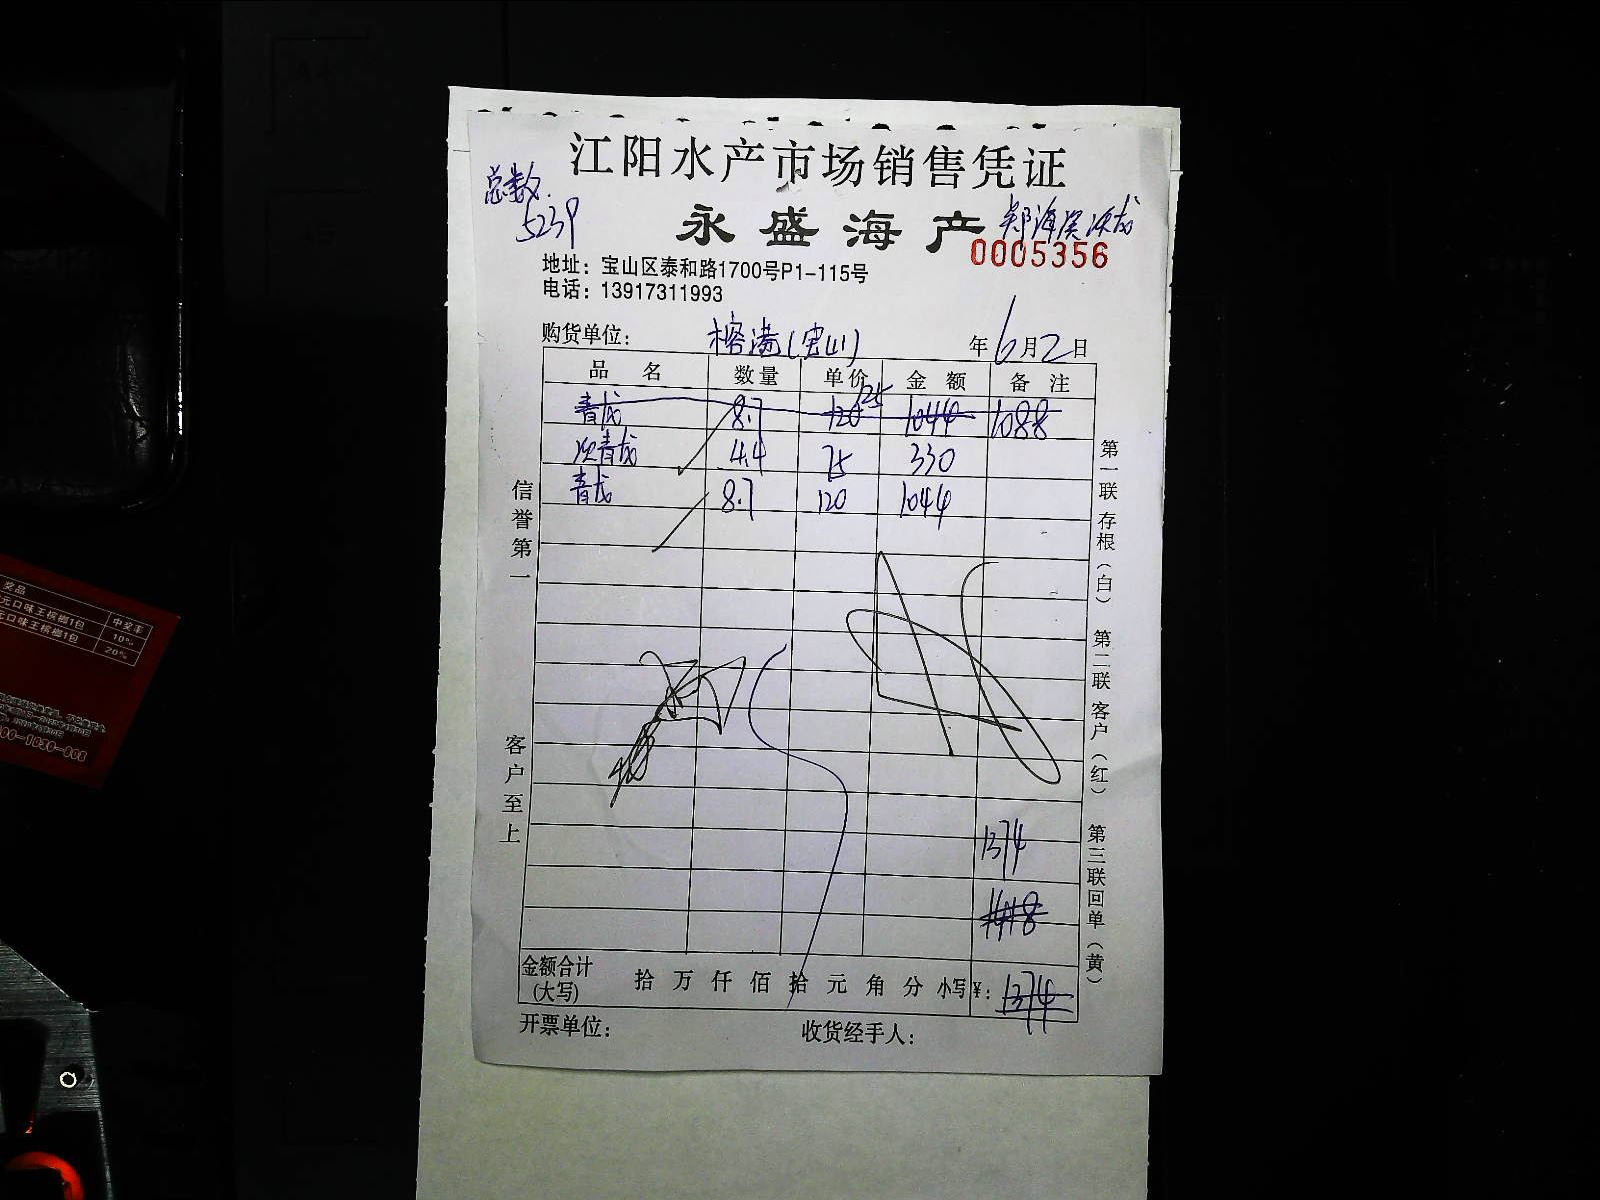 江阳水产市场销售凭证
总数
5239
永盛海产
0005356
地址：宝山区泰和路1700号P1-115号
电话：13917311993
购货单位： 榕港(宝山) 年6月2日
品 名 数量 单价 金 额 备 注
青龙 8.7 120 125 1044 1088
次青龙 4.4 75 330
青龙 8.7 120 1044
信誉第一
客户至上
第一联存根(白) 第二联客户(红) 第三联回单(黄)
1374
金额合计(大写) 拾 万 仟 佰 拾 元 角 分 小写¥： 1374
开票单位： 收货经手人：
奖品 中奖率
元口味王槟榔1包 10%
元口味王槟榔1包 20%